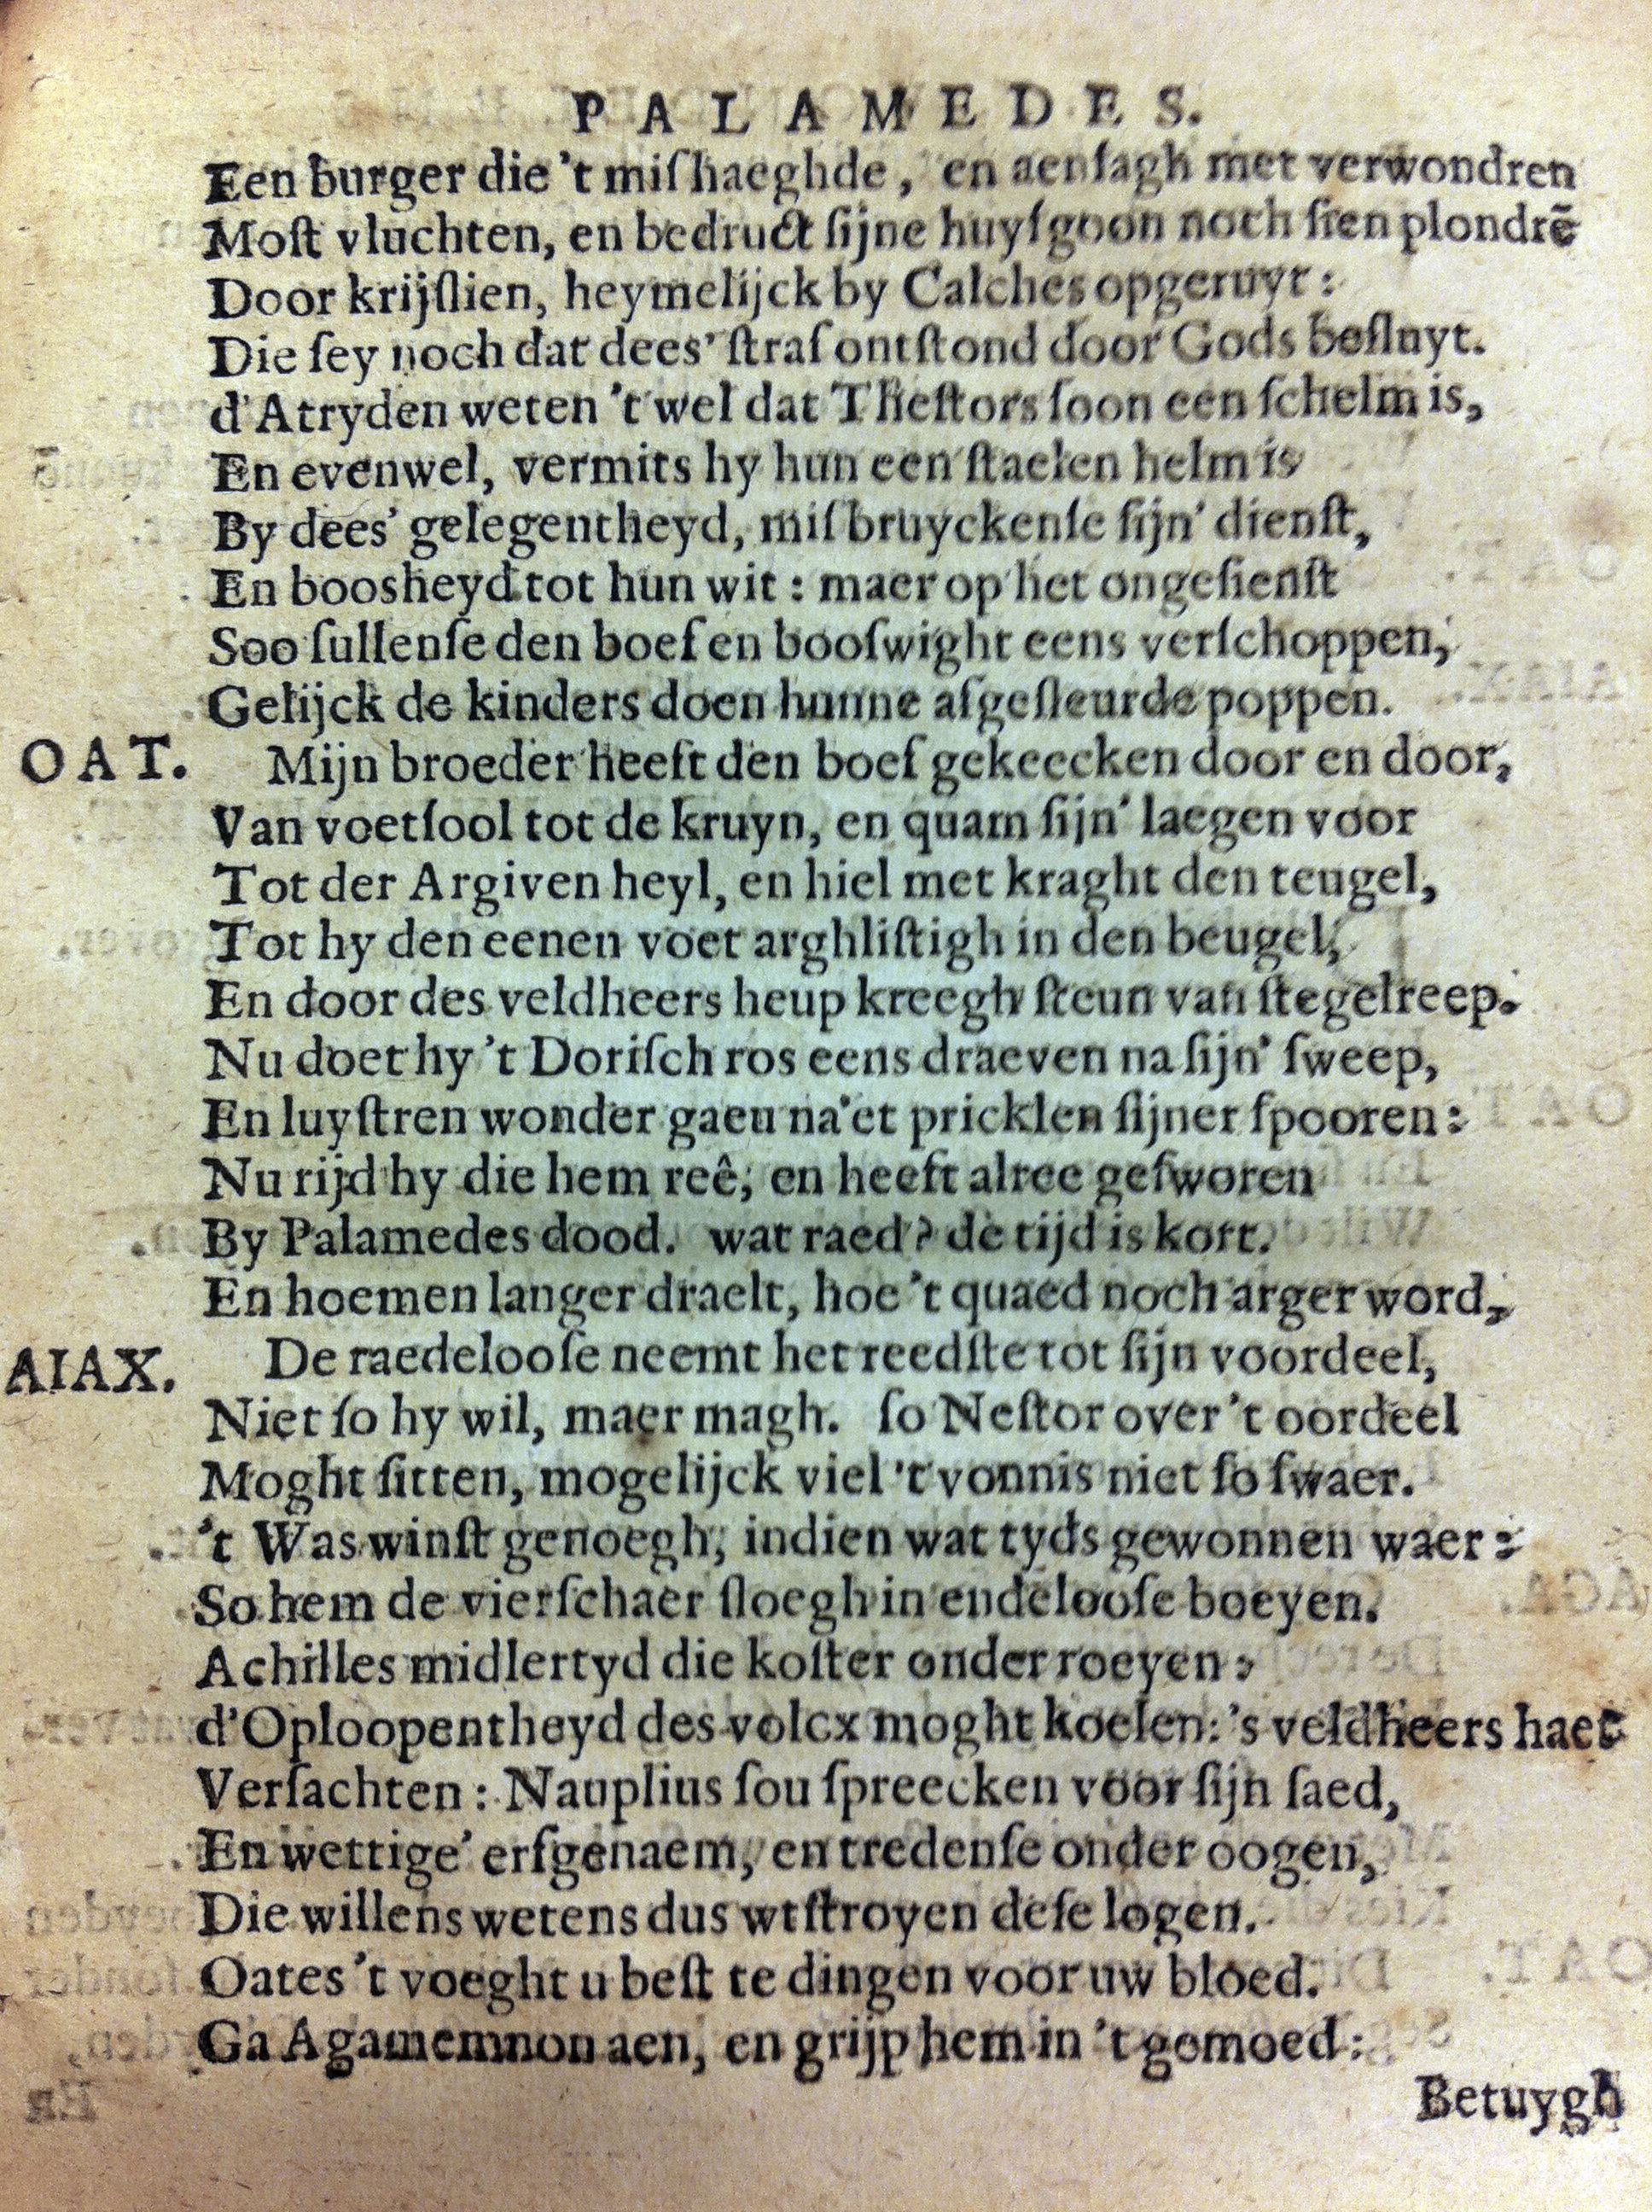 PALAMEDES.
Een burger die 't miſhaeghde, en aenſagh met verwondren
Moſt vluchten, en bedruct ſijne huyſgoon noch ſien plondrē
Door krijſlien, heymelijck by Calches opgeruyt:
Die ſey noch dat dees' ſtraf ontſtond door Gods beſluyt.
d'Atryden weten 't wel dat Theſtors ſoon een ſchelm is,
En evenwel, vermits hy hun een ſtaelen helm is
By dees' gelegentheyd, miſbruyckenſe ſijn' dienſt,
En boosheyd tot hun wit: maer op het ongeſienſt
Soo ſullenſe den boef en booſwight eens verſchoppen,
Gelijck de kinders doen hunne afgeſleurde poppen.
OAT. Mijn broeder heeft den boef gekeecken door en door,
Van voetſool tot de kruyn, en quam ſijn' laegen voor
Tot der Argiven heyl, en hiel met kraght den teugel,
Tot hy den eenen voet arghliſtigh in den beugel,
En door des veldheers heup kreegh ſteun van ſtegelreep.
Nu doet hy 't Doriſch ros eens draeven na ſijn' ſweep,
En luyſtren wonder gaeu na'et pricklen ſijner ſpooren:
Nu rijd hy die hem reê, en heeft alree geſworen
By Palamedes dood. wat raed? de tijd is kort.
En hoemen langer draelt, hoe 't quaed noch arger word,
AIAX. De raedelooſe neemt het reedſte tot ſijn voordeel,
Niet ſo hy wil, maer magh. ſo Neſtor over 't oordeel
Moght ſitten, mogelijck viel 't vonnis niet ſo ſwaer.
't Was winſt genoegh, indien wat tyds gewonnen waer:
So hem de vierſchaer ſloegh in endelooſe boeyen.
Achilles midlertyd die koſter onder roeyen:
d'Oploopentheyd des volcx moght koelen: 's veldheers haet
Verſachten: Nauplius ſou ſpreecken voor ſijn ſaed,
En wettige' erfgenaem, en tredenſe onder oogen,
Die willens wetens dus wtſtroyen deſe logen.
Oates 't voeght u beſt te dingen voor uw bloed.
Ga Agamemnon aen, en grijp hem in 't gemoed:
Betuygh